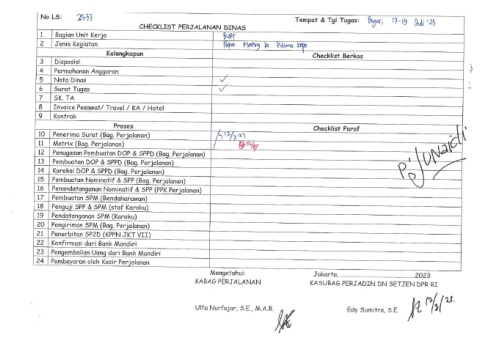 No LS: 2533
Tempat & Tgl Tugas: Bogor, 17-19 Juli '23
CHECKLIST PERJALANAN DINAS
1 Bagian Unit Kerja
2 Jenis Kegiatan
Kelengkapan Checklist Berkas
3 Disposisi
4 Permohonan Anggaran
5 Nota Dinas ✓
6 Surat Tugas ✓
7 SK, TA
8 Invoice Pesawat/ Travel / KA / Hotel
9 Kontrak
Proses Checklist Paraf
10 Penerima Surat (Bag. Perjalanan)
11 Matrix (Bag. Perjalanan)
12 Penugasan Pembuatan DOP & SPPD (Bag. Perjalanan)
13 Pembuatan DOP & SPPD (Bag. Perjalanan)
14 Koreksi DOP & SPPD (Bag. Perjalanan)
15 Pembuatan Nominatif & SPP (Bag. Perjalanan)
16 Penandatanganan Nominatif & SPP (PPK Perjalanan)
17 Pembuatan SPM (Bendaharawan)
18 Penguji SPP & SPM (staf Karoku)
19 Pendatanganan SPM (Karoku)
20 Pengiriman SPM (Bag. Perjalanan)
21 Penerbitan SP2D (KPPN JKT VII)
22 Konfirmasi dari Bank Mandiri
23 Pengembalian Uang dari Bank Mandiri
24 Pembayaran oleh Kasir Perjalanan
Junaidi
Mengetahui Jakarta, ........................2023
KABAG PERJALANAN KASUBAG PERJADIN DN SETJEN DPR RI
Ulfa Nurfajar, S.E., M.A.B. Edy Sumitra, S.E